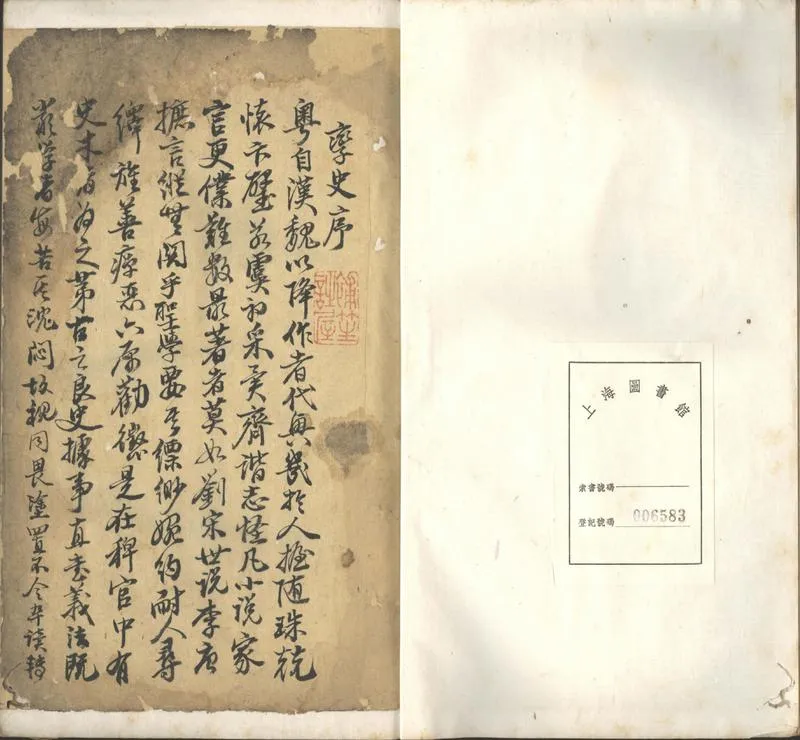 孽史序
粵自漢魏以降作者代興幾於人握隨珠競
懷卞璧若虞初采異齊諧志怪凡小說家
言更僕難數最著者莫如劉宋世說李唐
摭言縱無關乎聖學要其縹緲婉約耐人尋
繹旌善癉惡亦寓勸懲是在稗官中有
史才者為之第古之良史據事直書義法既
嚴學者每苦其沈悶故覩同畏途置不令卒讀轉
上海圖書館
索書號碼
登記號碼 006583